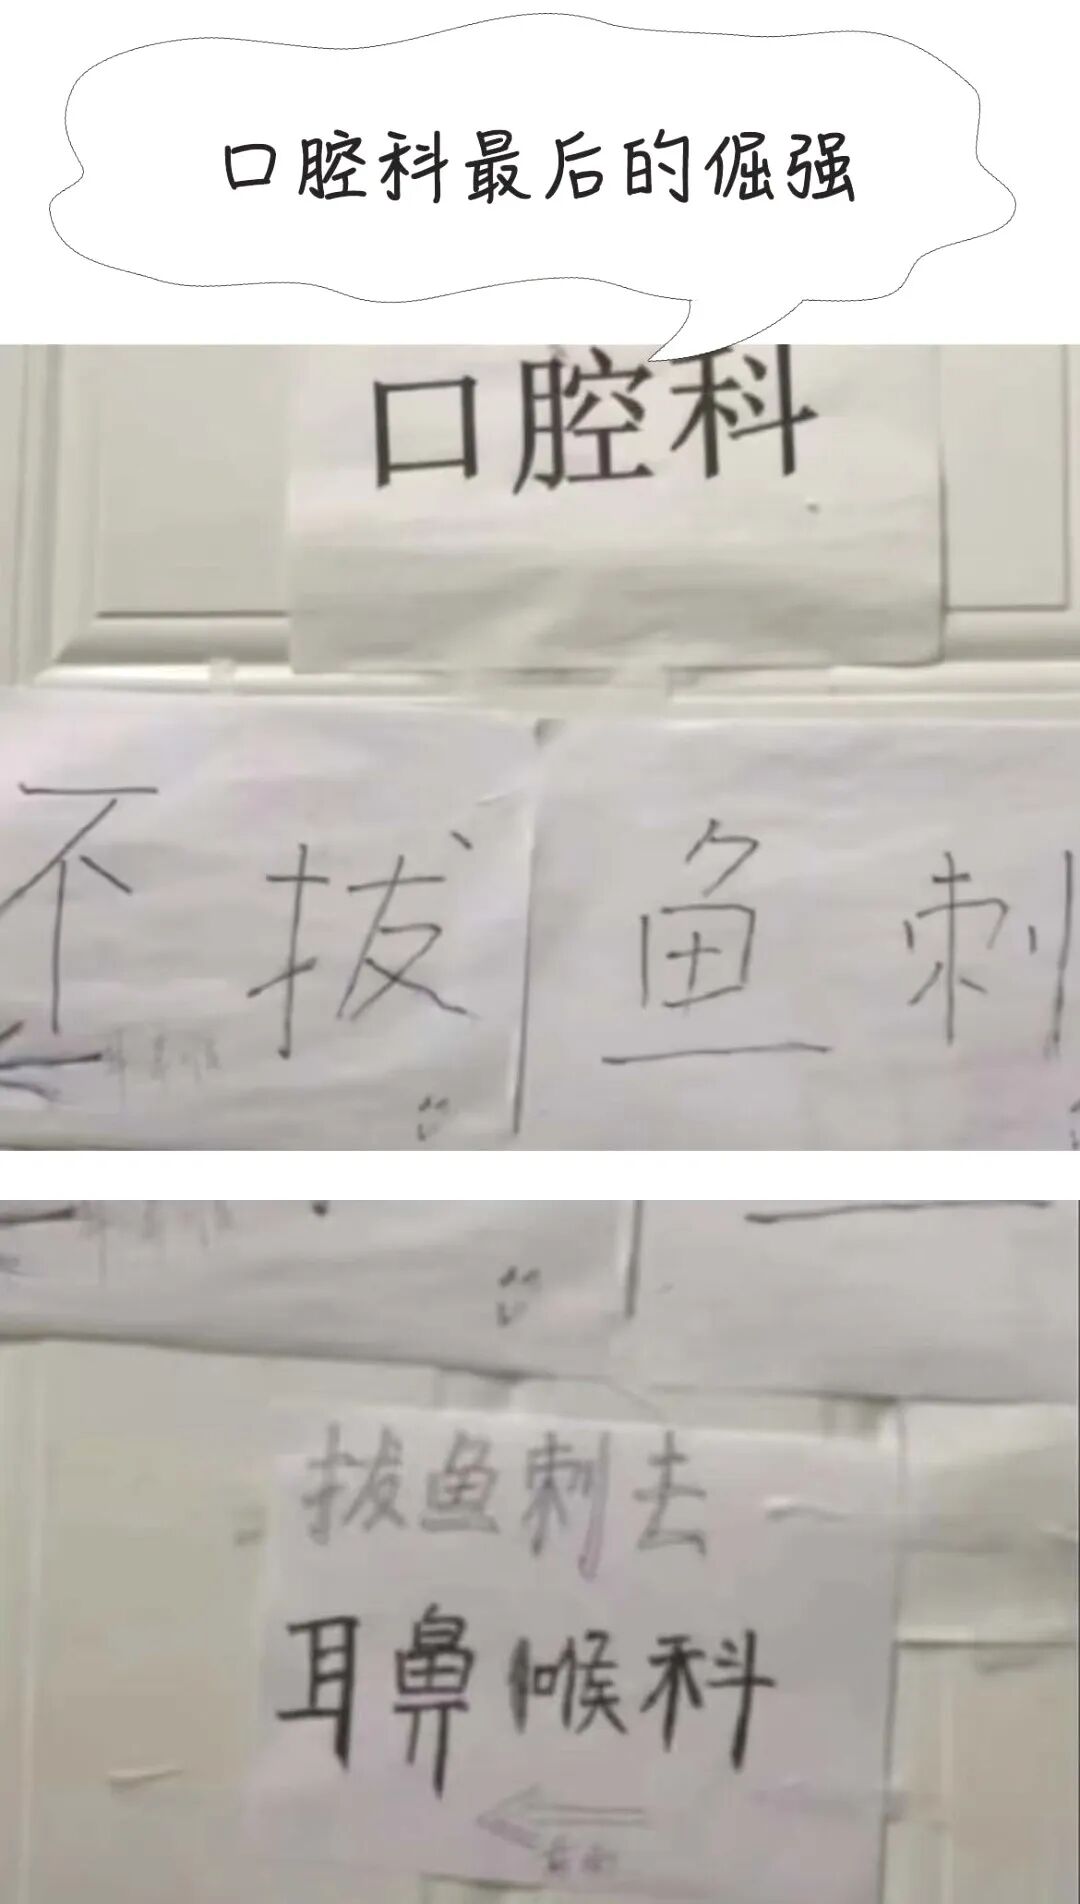 口腔科最后的倔强
口腔科
不拔鱼刺
拔鱼刺去
耳鼻喉科